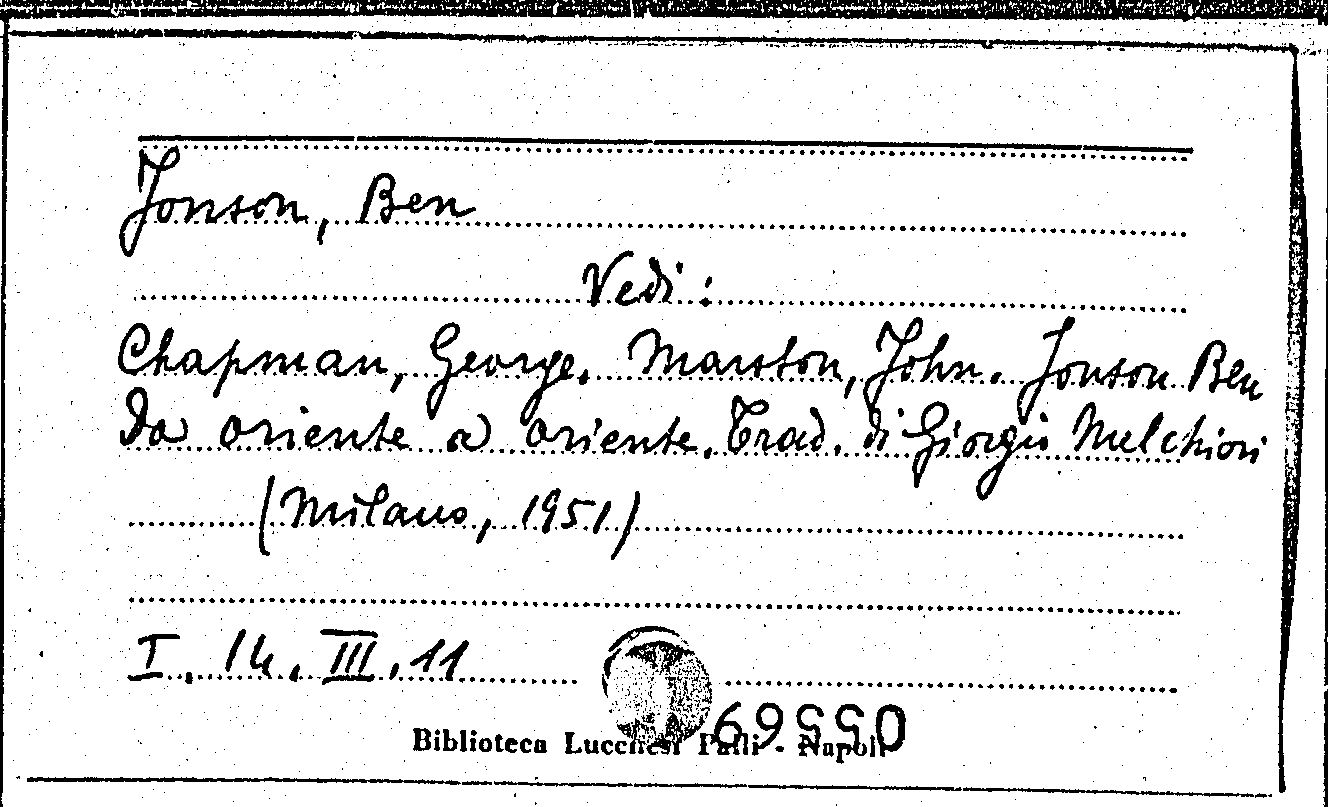 Jonson, Ben
Vedi:
Chapman, George. Marston, John. Jonson Ben
Da oriente a oriente. Trad. di Giorgio Melchiori
(Milano, 1951)
I. 14. III. 11
Biblioteca Lucchesi Palli - Napoli